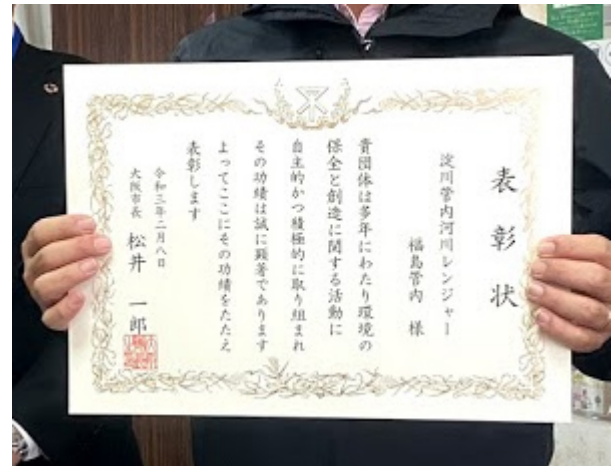 表彰状
淀川管内河川レンジャー
福島管内 様
貴団体は多年にわたり環境の
保全と創造に関する活動に
自主的かつ積極的に取り組まれ
その功績は誠に顕著であります
よってここにその功績をたたえ
表彰します
令和三年二月八日
大阪市長 松井 一郎